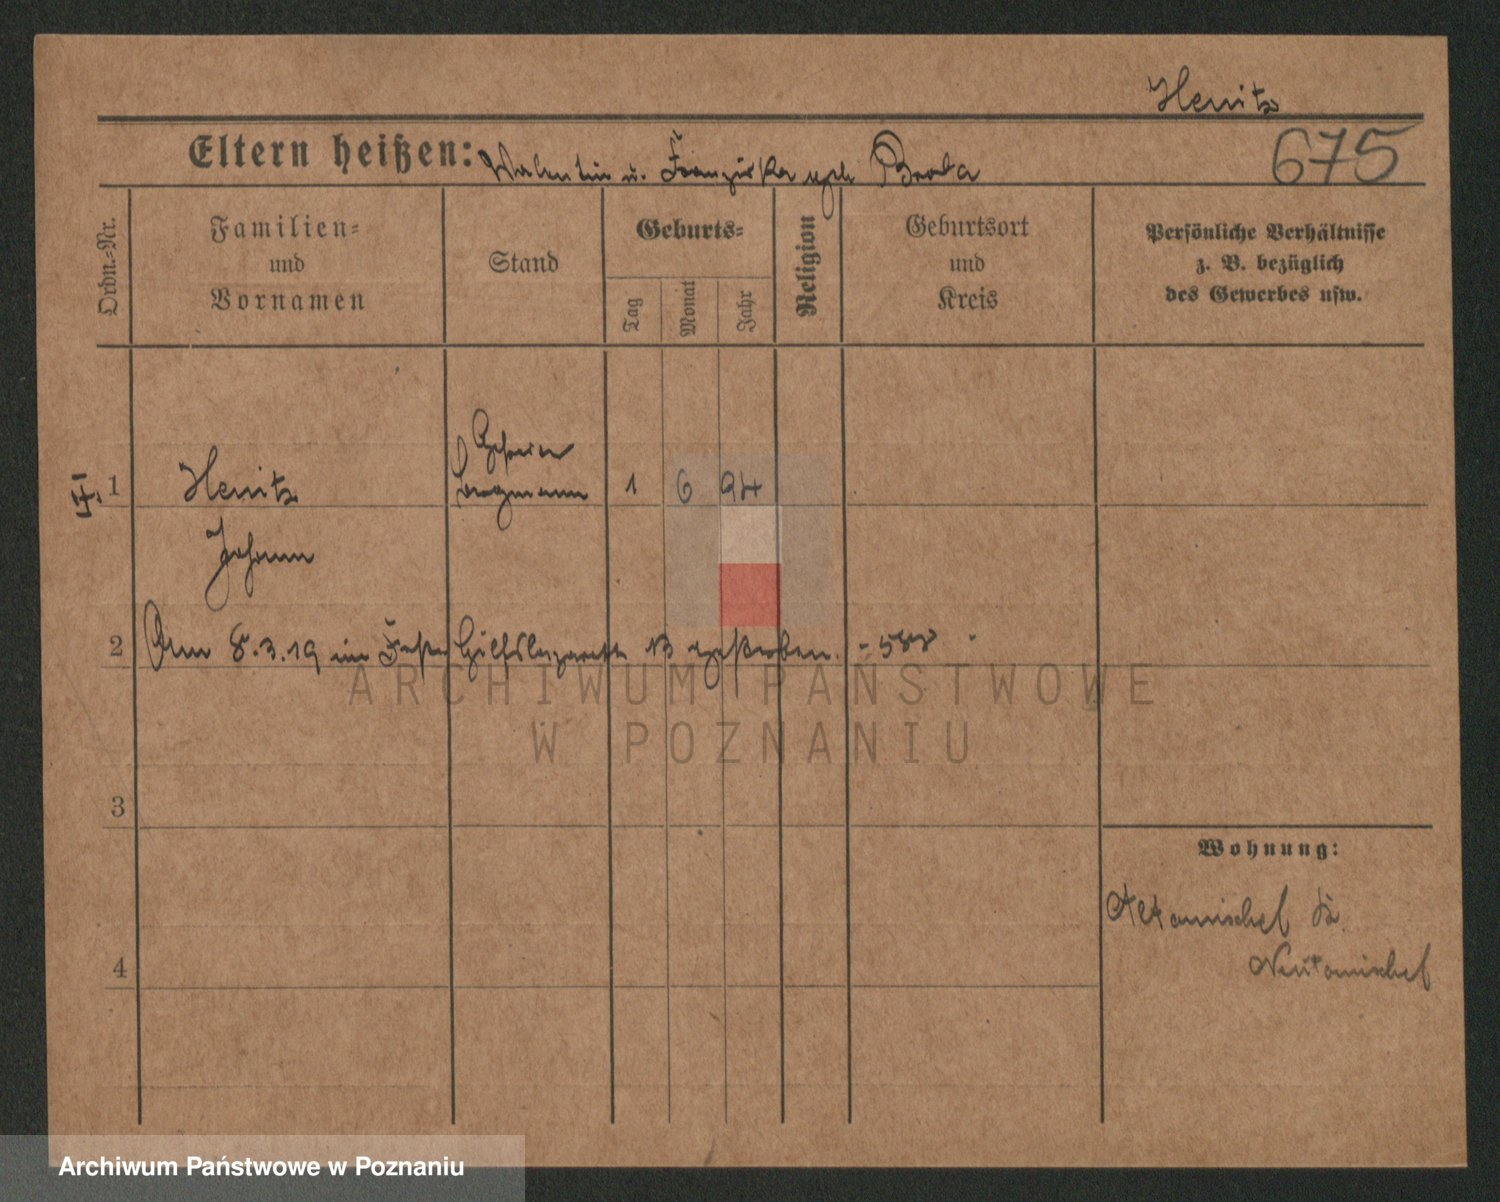 Heintz
Eltern heißen: Valentin u. Franziska geb Brota
675
Ordn.-Nr.
Familien-
und
Vornamen
Stand
Geburts-
Tag
Monat
Jahr
Religion
Geburtsort
und
Kreis
Persönliche Verhältnisse
z. B. bezüglich
des Gewerbes usw.
1
Heintz
1 6 94
Johann
2
Am 8.3.19 im Festgs Hilfslazarett gestorben.
ARCHIWUM PAŃSTWOWE
W POZNANIU
3
Wohnung:
Alttomischel
Neutomischel
4
Archiwum Państwowe w Poznaniu